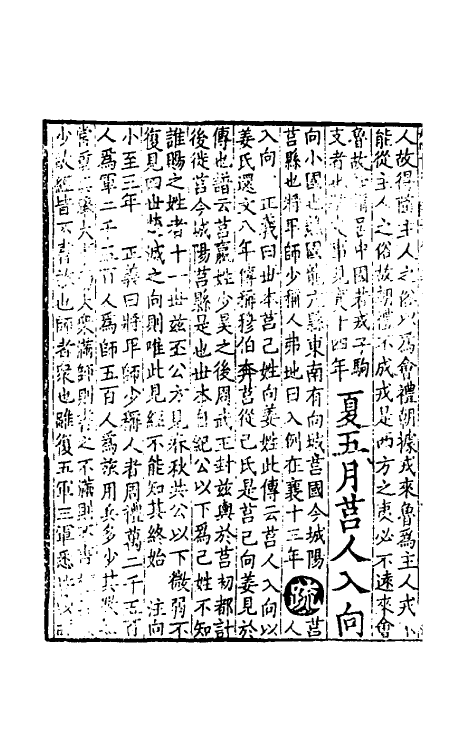 人故得隨主人之俗以為會禮朝據戎來魯為主人戎不
能從主人之俗故朝禮不成戎是西方之夷必不遠來會
魯故知謂居中國若戎子駒
支者也駒支事見襄十四年
夏五月莒人入向
向小國也譙國龍亢縣東南有向城莒國今城陽
莒縣也將卑師少稱人弗地曰入例在襄十三年
疏
莒人
入向 正義曰世本莒己姓向姜姓此傳云莒人入向以
姜氏還文八年傳稱穆伯奔莒從己氏是莒己向姜見於
傳也譜云莒嬴姓少昊之後周武王封兹輿於莒初都計
後徙莒今城陽莒縣是也世本自紀公以下為己姓不知
誰賜之姓者十一世兹丕公方見春秋共公以下微弱不
復見四世楚滅之向則唯此見經不能知其終始 注向
小至三年 正義曰將卑師少稱人者周禮萬二千五百
人為軍二千五百人為師五百人為旅用兵多少其數
常
大衆滿師則書之不滿則不書
少故經皆不書故也師者衆也雖復五軍三軍悉